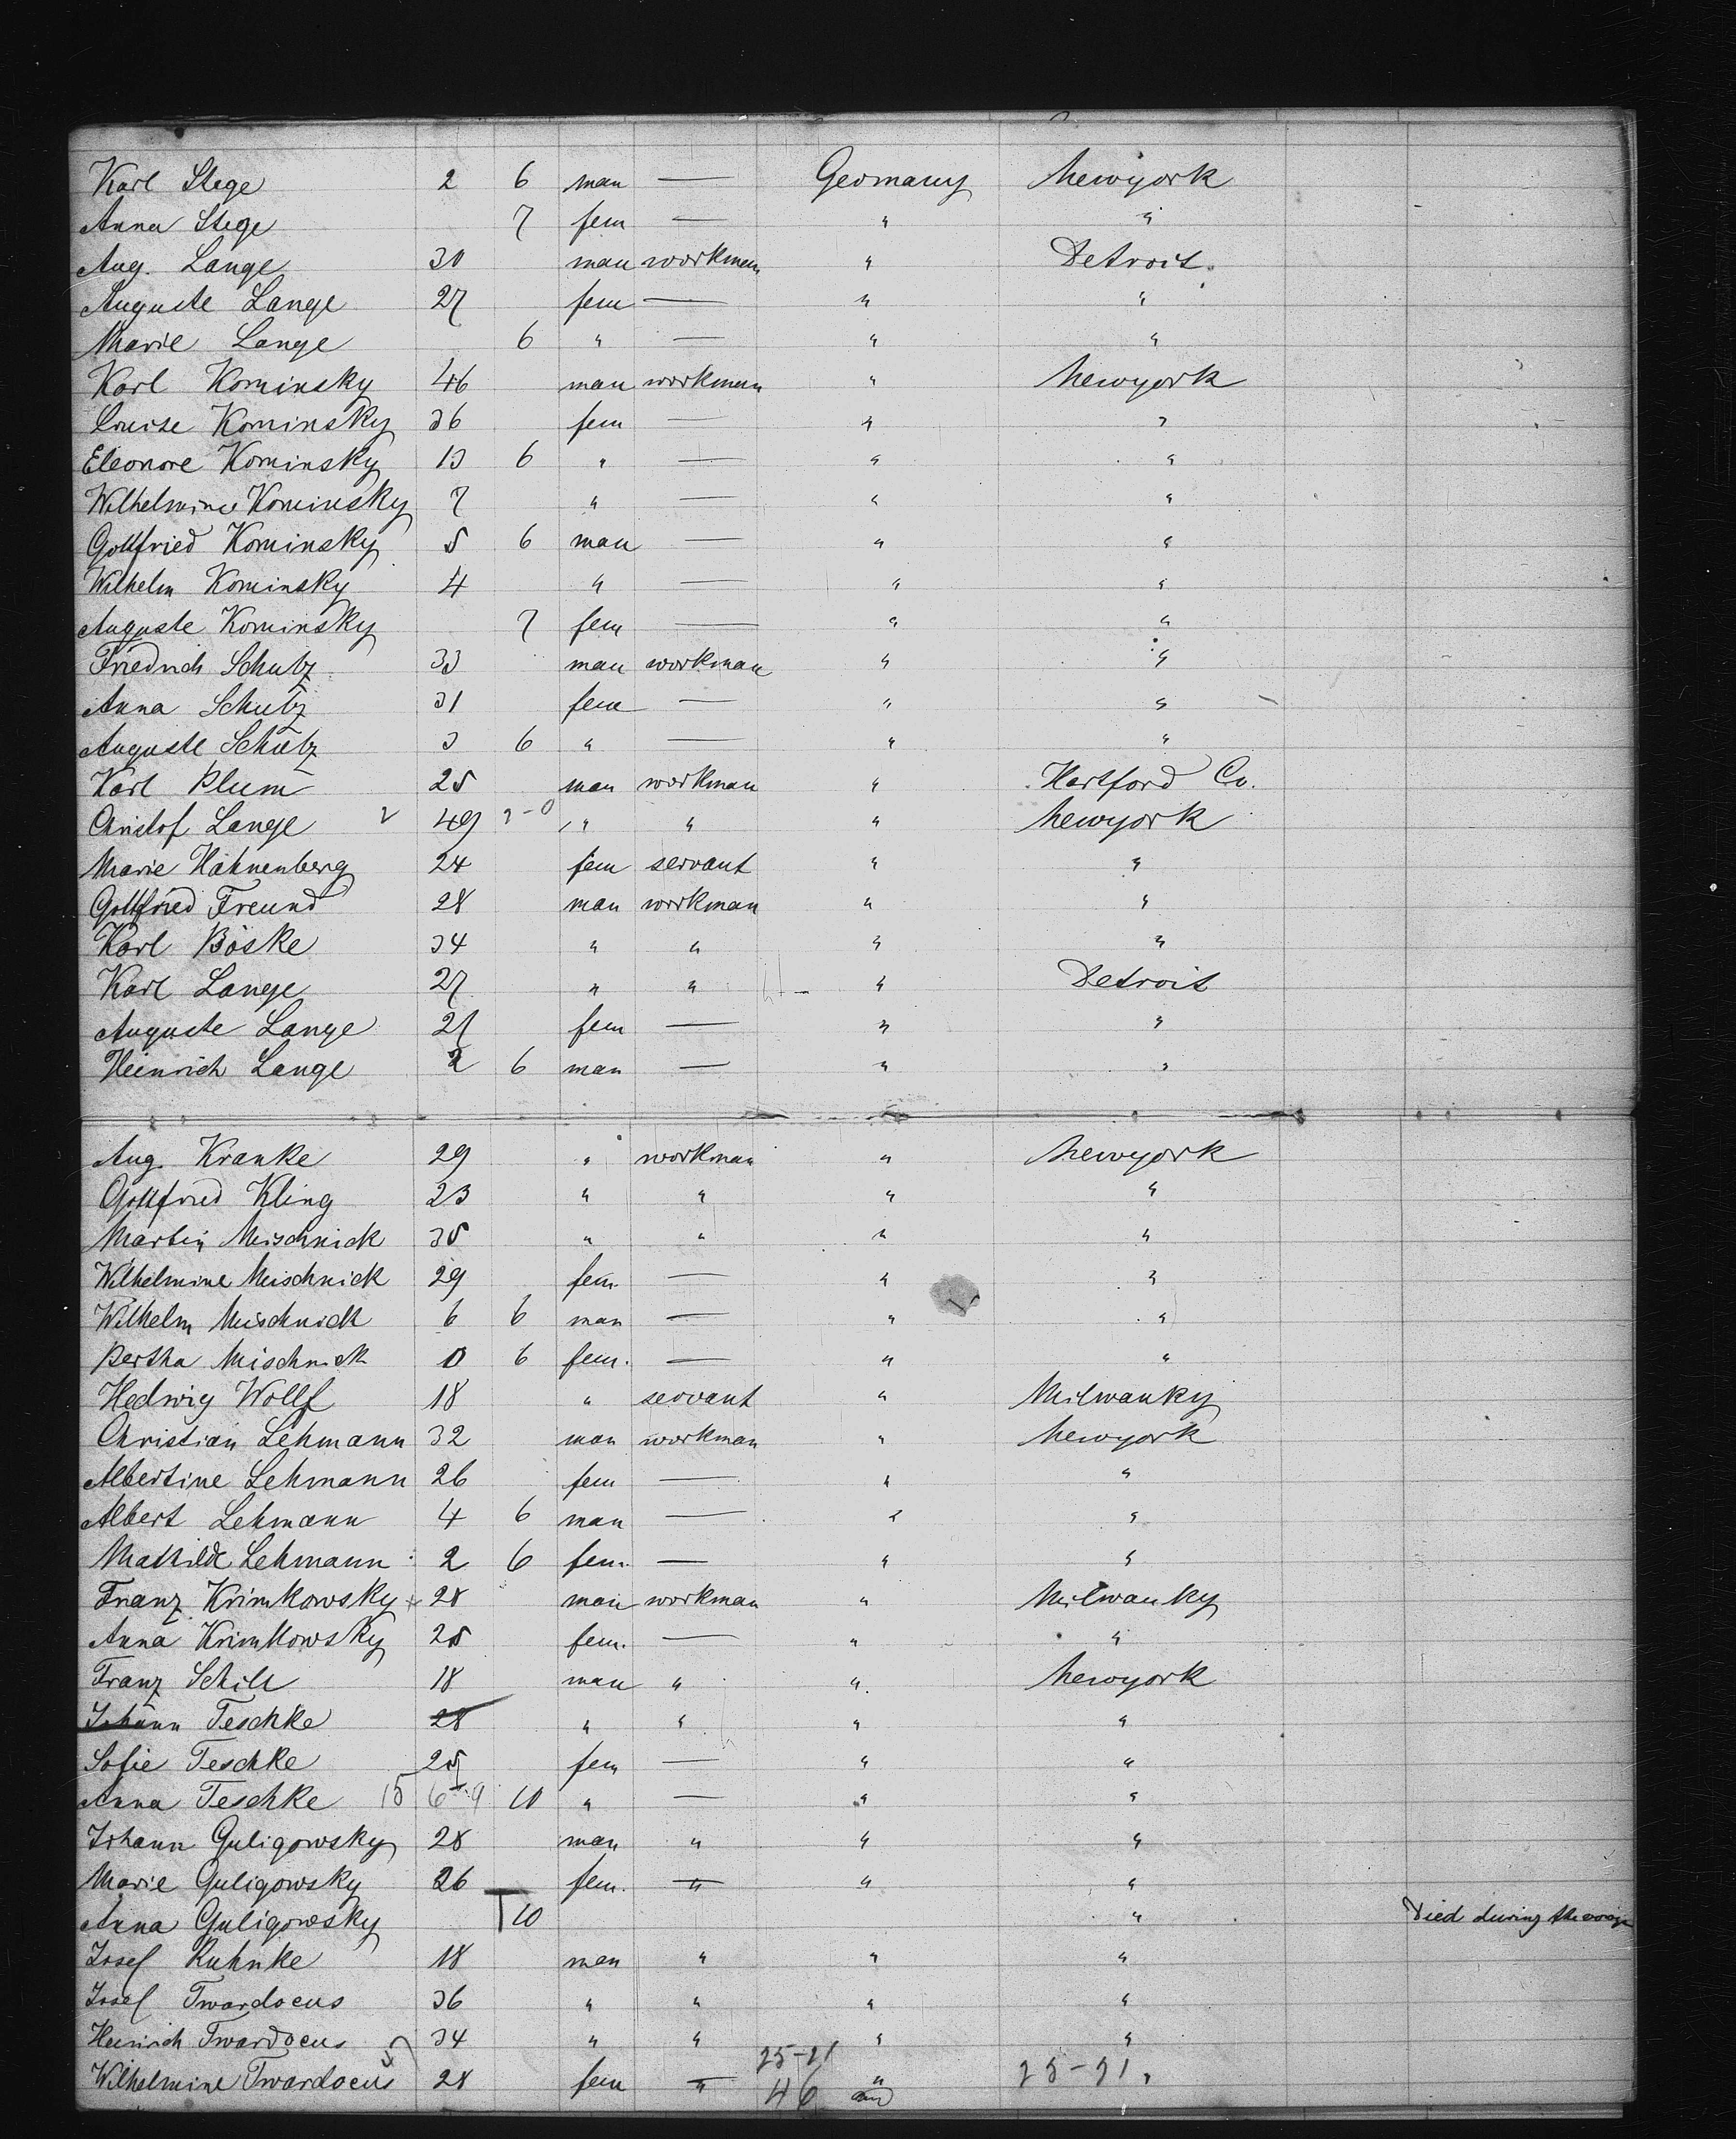 Karl Stege 2 6 man — Geomany Newyork
Anna Stege 7 fem — " "
Aug. Lange 30 man workman " Detroit.
Auguste Lange 27 fem — " "
Marie Lange 6 " — " "
Karl Kominsky 46 man workman " Newyork
Louise Kominsky 36 fem — " "
Eleonore Kominsky 13 6 " — " "
Wilhelmine Kominsky 7 " — " "
Gottfried Kominsky 5 6 man — " "
Wilhelm Kominsky 4 " — " "
Auguste Kominsky 7 fem — " "
Friedrich Schutz 33 man workman " "
Anna Schutz 31 fem — " "
Auguste Schutz 3 6 " — " "
Karl Plum 25 man workman " Hartford Co.
Christof Lange 49 " " " Newyork
Marie Hahnenberg 24 fem servant " "
Gottfried Freund 28 man workman " "
Karl Böske 34 " " " "
Karl Lange 27 " " " Detroit
Auguste Lange 21 fem — " "
Heinrich Lange 2 6 man — " "
Aug. Kranke 29 " workman " Newyork
Gottfried Kling 23 " " " "
Martin Mischnick 35 " " " "
Wilhelmine Mischnick 29 fem. — " "
Wilhelm Mischnick 6 6 man — " "
Bertha Mischnick 0 6 fem. — " "
Hedwig Wollf 18 " servant " Milwauky
Christian Lehmann 32 man workman " Newyork
Albertine Lehmann 26 fem — " "
Albert Lehmann 4 6 man — " "
Mathilde Lehmann 2 6 fem. — " "
Franz Krimkowsky 28 man workman " Milwauky
Anna Krimkowsky 25 fem. — " "
Franz Schill 18 man " " Newyork
Johann Teschke 28 " " " "
Sofie Teschke 25 fem — " "
Anna Teschke 10 " — " "
Johann Guligowsky 28 man " " "
Marie Guligowsky 26 fem. " " "
Anna Guligowsky 10 " Died during the
Josef Kuhnke 18 man " " "
Josef Twardocus 36 " " " "
Heinrich Twardocus 34 " " " "
Wilhelmine Twardocus 28 fem " "
46